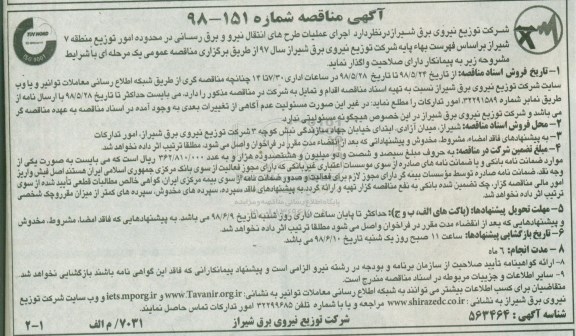 آگهی مناقصه شماره ۱۵۱-۹۸
شرکت توزیع نیروی برق شیراز درنظر دارد اجرای عملیات طرح های انتقال نیرو و برق رسانی در محدوده امور توزیع منطقه ۷
شیراز براساس فهرست بهاء پایه شرکت توزیع نیروی برق شیراز سال ۹۷ از طریق برگزاری مناقصه عمومی یک مرحله ای با شرایط
مشروحه زیر به پیمانکار دارای صلاحیت واگذار نماید.
۱- تاریخ فروش اسناد مناقصه: از تاریخ ۹۸/۵/۲۲ تا تاریخ ۹۸/۵/۲۸ در ساعات اداری ۷/۳۰ تا ۱۴ چنانچه مناقصه گری از طریق شبکه اطلاع رسانی معاملات توانیر و یا وب
سایت شرکت توزیع نیروی برق شیراز نسبت به تهیه اسناد مناقصه اقدام و تمایل به شرکت در مناقصه مذکور را دارد، می بایست حداکثر تا تاریخ ۹۸/۵/۲۸ با ارسال نامه از
طریق نمابر شماره ۳۲۲۹۱۵۸۹ امور تدارکات را مطلع نماید؛ در غیر این صورت مسئولیت عدم آگاهی از تغییرات بعدی به وجود آمده در اسناد مناقصه به عهده مناقصه گر
می باشد و شرکت توزیع نیروی برق شیراز در این خصوص هیچگونه مسئولیتی ندارد.
۲- محل فروش اسناد مناقصه: شیراز، میدان آزادی، ابتدای خیابان جهاد سازندگی نبش کوچه ۲ شرکت توزیع نیروی برق شیراز، امور تدارکات
۳- به پیشنهادهای فاقد امضاء، مشروط، مخدوش و پیشنهاداتی که بعد از انقضاء مدت مقرر در فراخوان واصل می شود، مطلقا ترتیب اثر داده نخواهد شد.
۴- مبلغ تضمین شرکت در مناقصه: به حروف مبلغ سیصد و شصت و دو میلیون و هشتصد و ده هزار و به عدد ۳۶۲/۸۱۰/۰۰۰ ریال است که می بایست به صورت یکی از
موارد ضمانت نامه بانکی و یا ضمانت نامه های صادره از سوی موسسات اعتباری غیربانکی که دارای مجوز فعالیت از سوی بانک مرکزی جمهوری اسلامی ایران هستند اصل فیش واریز
وجه نقد، ضمانت نامه صادره توسط مؤسسات بیمه گر دارای مجوز لازم برای فعالیت و صدور ضمانت نامه از سوی بیمه مرکزی ایران، گواهی خالص مطالبات قطعی تأیید شده از سوی
امور مالی مناقصه گزار، چک تضمین شده بانکی به نفع مناقصه گزار تهیه و ارائه گردد به پیشنهادهای فاقد سپرده، سپرده های مخدوش، سپرده های کمتر از میزان مقرر و چک شخصی
ترتیب اثر داده نخواهد شد.
۵- مهلت تحویل پیشنهادها: (پاکت های الف، ب و ج): حداکثر تا پایان ساعت اداری روز شنبه تاریخ ۹۸/۶/۹ می باشد. به پیشنهادهایی که فاقد امضا، مشروط، مخدوش
و پیشنهادهایی که بعد از انقضاء مدت مقرر در فراخوان واصل می شود مطلقا ترتیب اثر داده نخواهد شد.
۶- تاریخ بازگشایی پیشنهادها: ساعت ۱۱ صبح روز یک شنبه تاریخ ۹۸/۶/۱۰ می باشد.
۸- مدت انجام: ۶ ماه
۸- ارائه گواهینامه تأیید صلاحیت از سازمان برنامه و بودجه در رشته نیرو الزامی است و پیشنهاد پیمانکارانی که فاقد این گواهی نامه باشند بازگشایی نخواهد شد.
۹- سایر اطلاعات و جزییات مربوطه در اسناد مناقصه مندرج است.
متقاضیان برای کسب اطلاعات بیشتر می توانند به شبکه اطلاع رسانی معاملات توانیر به نشانی: www.Tavanir.org.ir و iets.mporg.ir و وب سایت شرکت توزیع
نیروی برق شیراز به نشانی: www.shirazedc.co.ir مراجعه و یا با شماره تلفن ۳۲۲۹۹۶۸۵ امور تدارکات تماس حاصل نمایند.
شناسه آگهی: ۵۶۳۴۶۴
شرکت توزیع نیروی برق شیراز
۷۰۳۱/م الف
۱-۲